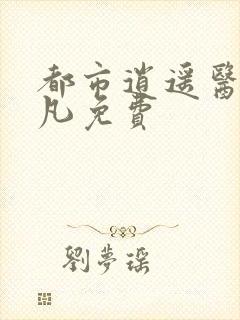 都市逍遥醫
凡免費
劉夢瑶